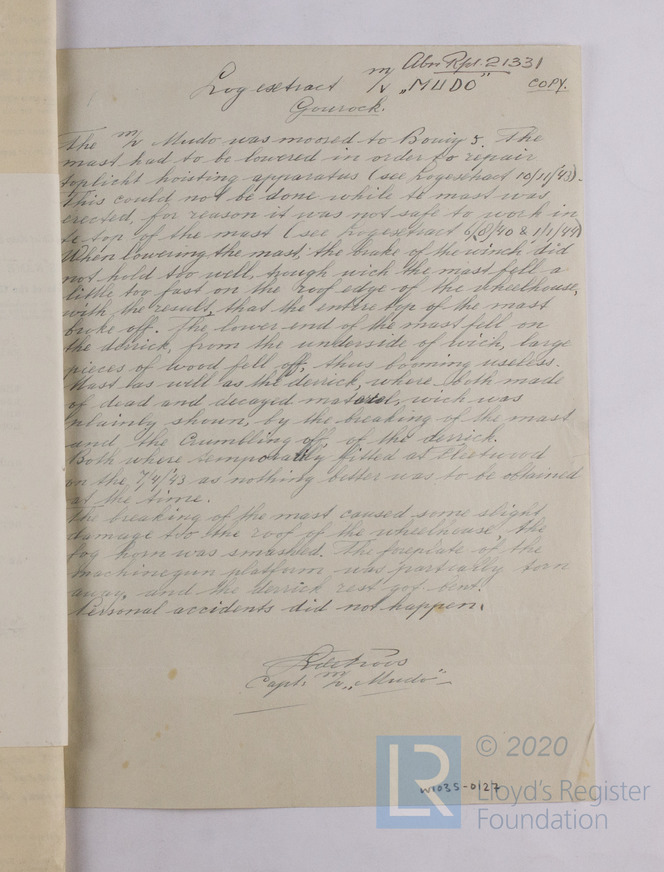 Abn Rpt. 21331
Log extract m/v "MUDO" COPY.
Gourock.
The m/v Mudo was moored to Bouiy 5. The
mast had to be lowered in order to repair
toplicht hoisting apparatus (see logextract 10/11/43).
This could not be done while te mast was
erected, for reason it was not safe to work in
te top of the mast (see logextract 6/8/40 & 1/1/44)
When lowering the mast, the brake of the winch did
not hold too well, trough wich the mast fell a
little too fast on the roof edge of the wheelhouse,
with the result, that the entire top of the mast
broke off. The lower end of the mast fell on
the derrick, from the underside of wich, large
pieces of wood fell off, thus booming useless.
Mast as will as the derrick, where both made
of dead and decayed material, wich was
plainly shown, by the breaking of the mast
and the Crumbling off, of the derrick.
Both where temporatily fitted at Fleetwood
on the 7/4/43 as nothing better was to be obtained
at the time.
The breaking of the mast caused some slight
damage too the roof of the wheelhouse, the
fog horn was smashed. The foreplate of the
machinegun platform was partiarly torn
away, and the derrick rest got bent.
Personal accidents did not happen.
Capt. m/v "Mudo"
W1035-0127
LR
© 2020
Lloyd's Register
Foundation